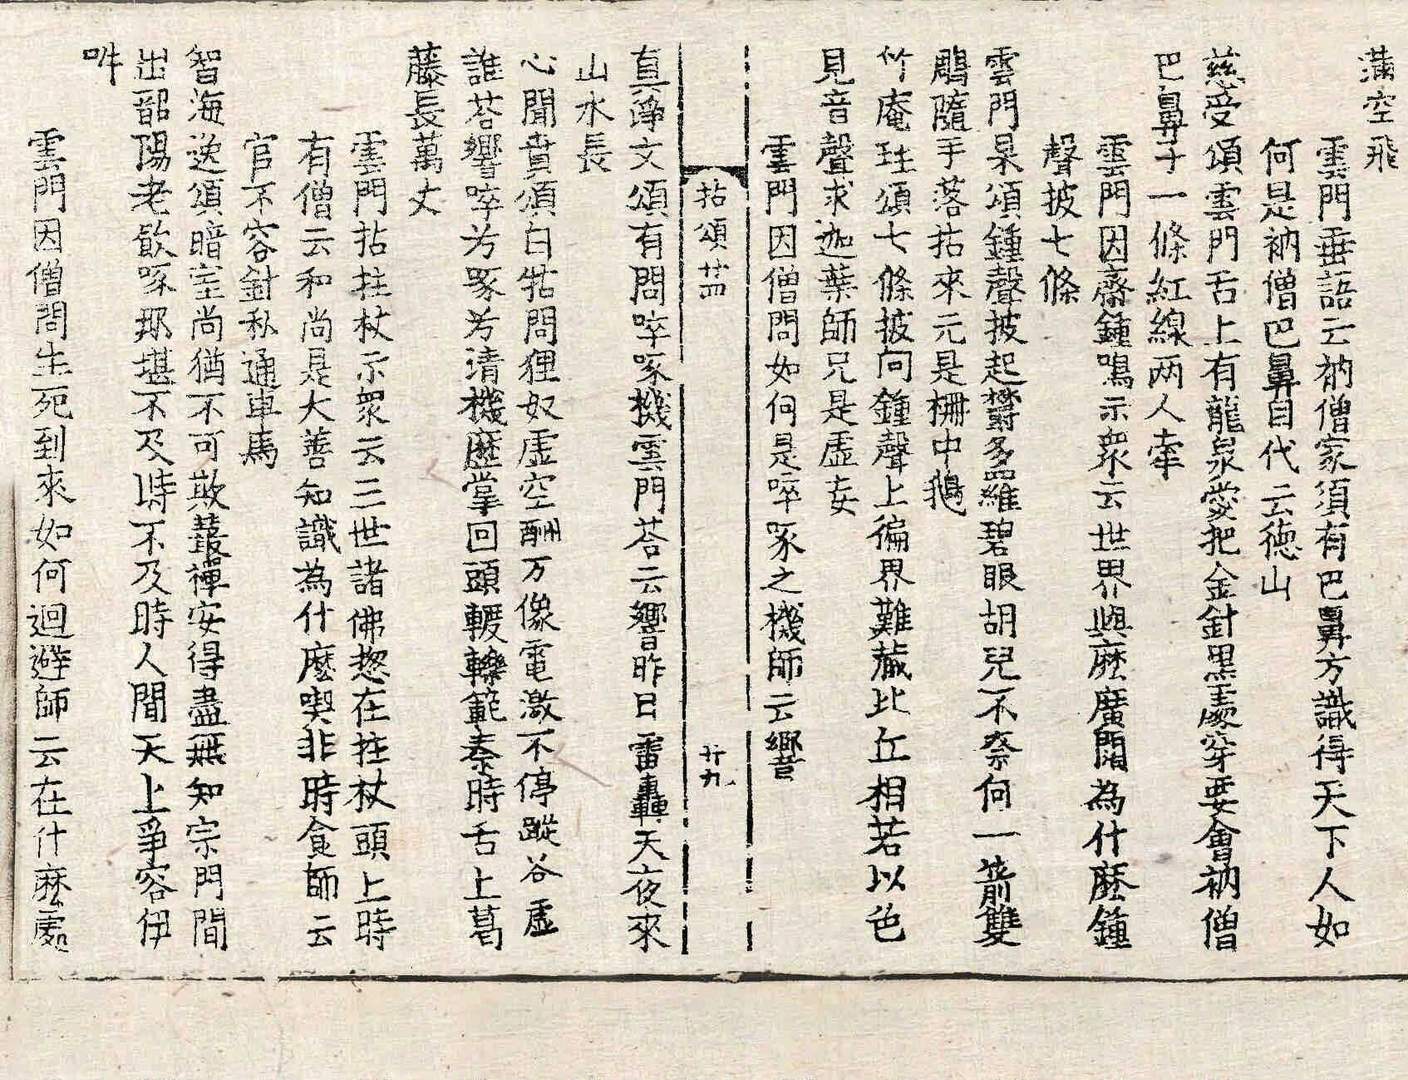 滿空飛
雲門垂語云衲僧家須有巴鼻方識得天下人如
何是衲僧巴鼻自代云德山
慈受頌雲門舌上有龍泉愛把金針黑處穿要會衲僧
巴鼻子一條紅線两人牽
雲門因齋鍾鳴示衆云世界與麽廣闊為什麽鍾
聲披七條
雲門杲頌鍾聲披起欝多羅碧眼胡兒不奈何一箭雙
鵰隨手落拈來元是柵中鵝
竹庵珪頌七條披向鍾聲上徧界難藏比丘相若以色
見音聲求迦葉師兄是虛妄
雲門因僧問如何是啐啄之機師云響
拈頌卄四
卄九
真淨文頌有問啐啄機雲門荅云響昨日雷轟天夜來
山水長
心聞賁頌白牯問狸奴虛空酬万像電激不停蹤谷虛
誰荅響啐𠔃啄𠔃清機歷掌回頭轣轢範秦時舌上葛
藤長萬丈
雲門拈拄杖示衆云三世諸佛揔在拄杖頭上時
有僧云和尚是大善知識為什麽喫非時食師云
官不容針私通車馬
智海逸頌暗室尚猶不可欺叢禪安得盡無知宗門間
出韶陽老飮啄那堪不及時不及時人間天上爭容伊
吽
雲門因僧問生死到來如何迴避師云在什麽處